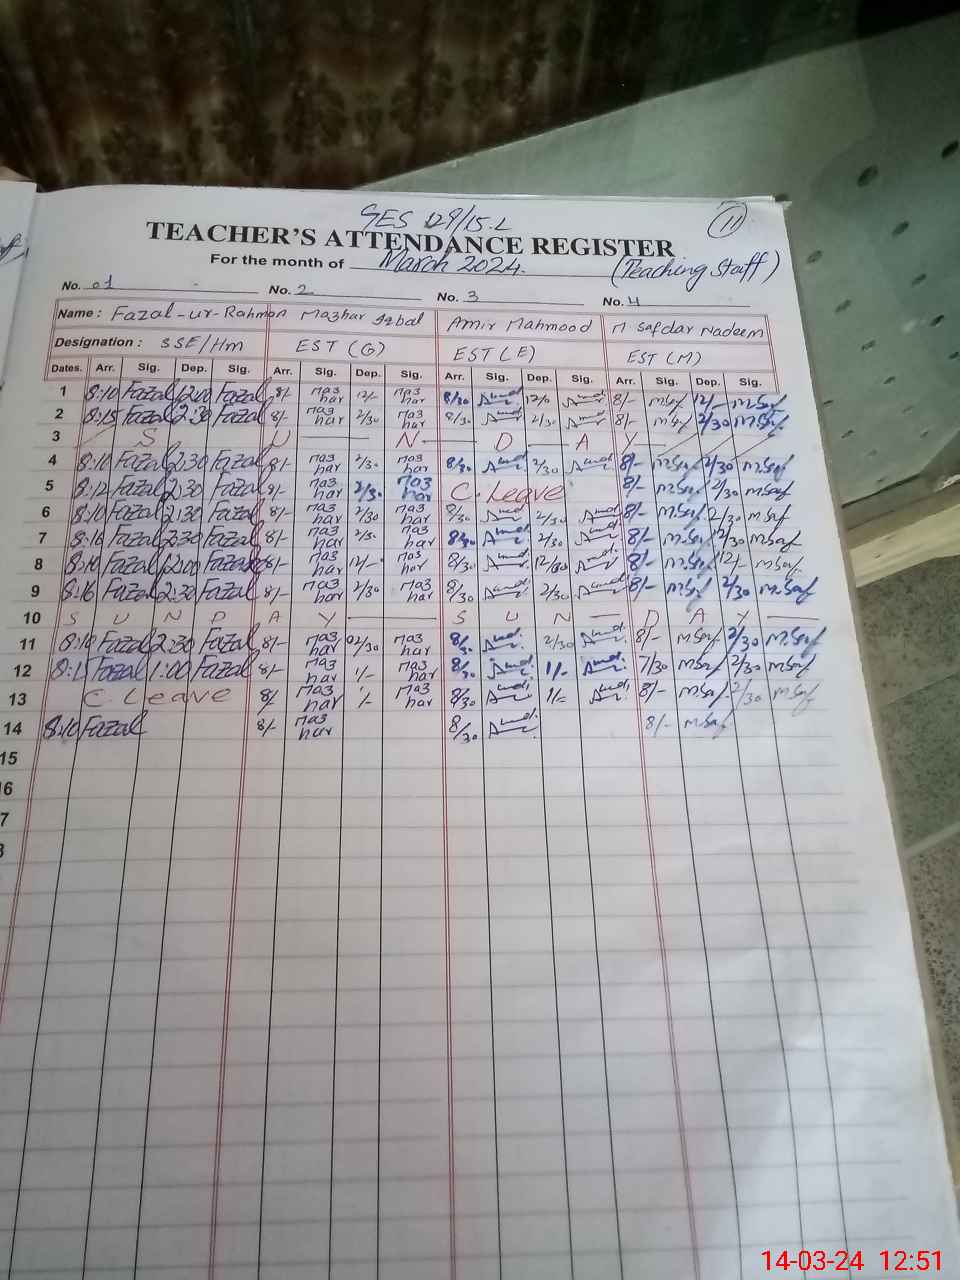 GES 129/15.L
11
TEACHER'S ATTENDANCE REGISTER
For the month of March 2024. (Teaching Staff)
No. 01 No. 2 No. 3 No. 4
Name : Fazal-ur-Rahman Mazhar Iqbal Amir Mahmood M Safdar Nadeem
Designation : SSE/Hm EST (G) EST (E) EST (M)
Dates. Arr. Sig. Dep. Sig. Arr. Sig. Dep. Sig. Arr. Sig. Dep. Sig. Arr. Sig. Dep. Sig.
1 8:10 Fazal 12:00 Fazal 8/- Mazhar 12/- Mazhar 8/30 8/- M Saf 12/- M Saf
2 8:15 Fazal 2:30 Fazal 8/- Mazhar 2/30 Mazhar 8/30 8/- M Saf 2/30 M Saf
3 S U N D A Y
4 8:10 Fazal 2:30 Fazal 8/- Mazhar 2/30 Mazhar 8/30 2/30 8/- M Saf 2/30 M Saf
5 8:12 Fazal 2:30 Fazal 8/- Mazhar 2/30 Mazhar C. Leave 8/- M Saf 2/30 M Saf
6 8:10 Fazal 2:30 Fazal 8/- Mazhar 2/30 Mazhar 8/30 2/30 8/- M Saf 2/30 M Saf
7 8:16 Fazal 2:30 Fazal 8/- Mazhar 2/30 Mazhar 8/30 2/30 8/- M Saf 2/30 M Saf
8 8:10 Fazal 12:00 Fazal 8/- Mazhar 12/- Mazhar 8/30 8/- M Saf 12/- M Saf
9 8:16 Fazal 2:30 Fazal 8/- Mazhar 2/30 Mazhar 8/30 2/30 8/- M Saf 2/30 M Saf
10 S U N D A Y S U N D A Y
11 8:10 Fazal 2:30 Fazal 8/- Mazhar 02/30 Mazhar 8/30 2/30 8/- M Saf 2/30 M Saf
12 8:15 Fazal 1:00 Fazal 8/- Mazhar 1/- Mazhar 8/30 1/- 7/30 M Saf 2/30 M Saf
13 C. Leave 8/ Mazhar 1/- Mazhar 8/30 1/- 8/- M Saf 2/30 M Saf
14 8:10 Fazal 8/- Mazhar 8/30 8/- M Saf
15
16
7
14-03-24 12:51